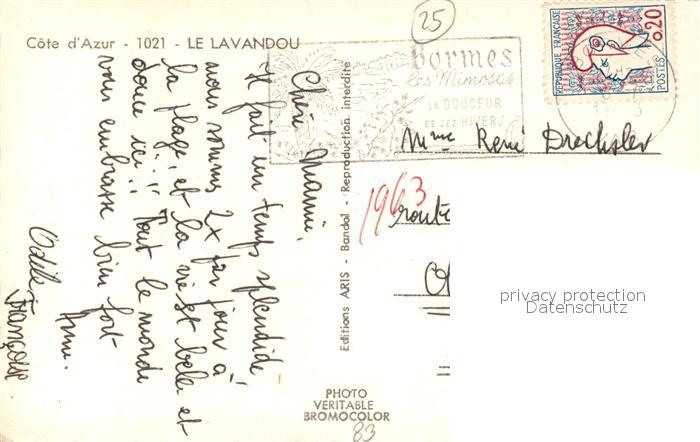 25
Côte d'Azur - 1021 - LE LAVANDOU
bormes
les Mimosas
LA DOUCEUR
DE SES HIVERS
REPUBLIQUE FRANÇAISE
0,20
POSTES
Chère Mamie,
Il fait un temps splendide
nous sommes 2x par jour à
la plage, et la vie est belle et
douce ici !! Tout le monde
vous embrasse bien fort
Odile,
Françoise
Editions ARIS - Bandol - Reproduction interdite
Mme René Drechsler
1963
route
privacy protection
Datenschutz
PHOTO
VERITABLE
BROMOCOLOR
83